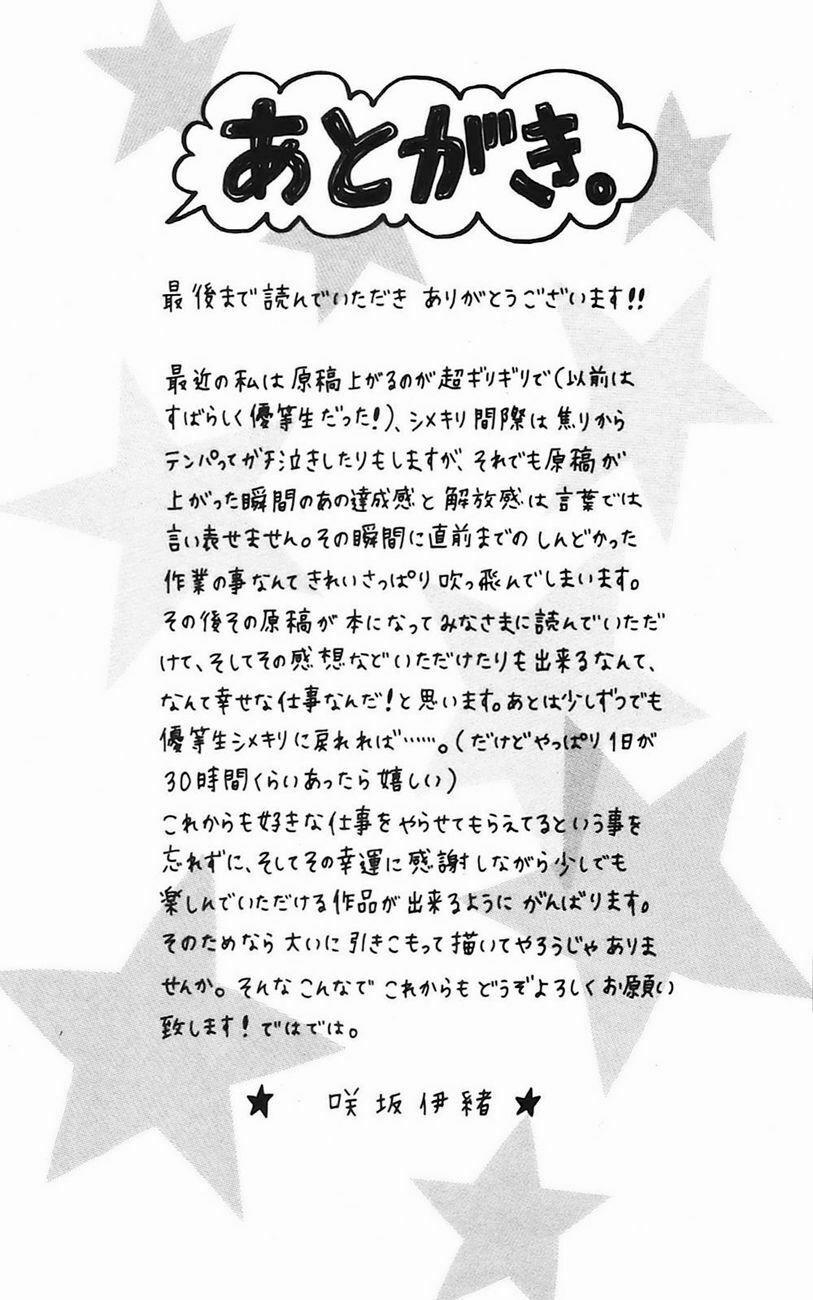 あとがき。
最後まで読んでいただき ありがとうございます!!
最近の私は原稿上がるのが超ギリギリで(以前は
すばらしく優等生だった!)、シメキリ間際は焦りから
テンパってガチ泣きしたりもしますが、それでも原稿が
上がった瞬間のあの達成感と解放感は言葉では
言い表せません。その瞬間に直前までのしんどかった
作業の事なんてきれいさっぱり吹っ飛んでしまいます。
その後その原稿が本になってみなさまに読んでいただ
けて、そしてその感想などいただけたりも出来るなんて、
なんて幸せな仕事なんだ!と思います。あとは少しずつでも
優等生シメキリに戻れれば……。(だけどやっぱり1日が
30時間くらいあったら嬉しい)
これからも好きな仕事をやらせてもらえてるという事を
忘れずに、そしてその幸運に感謝しながら少しでも
楽しんでいただける作品が出来るようにがんばります。
そのためなら大いに引きこもって描いてやろうじゃありま
せんか。そんなこんなでこれからもどうぞよろしくお願い
致します!ではでは。
★ 咲坂伊緒 ★